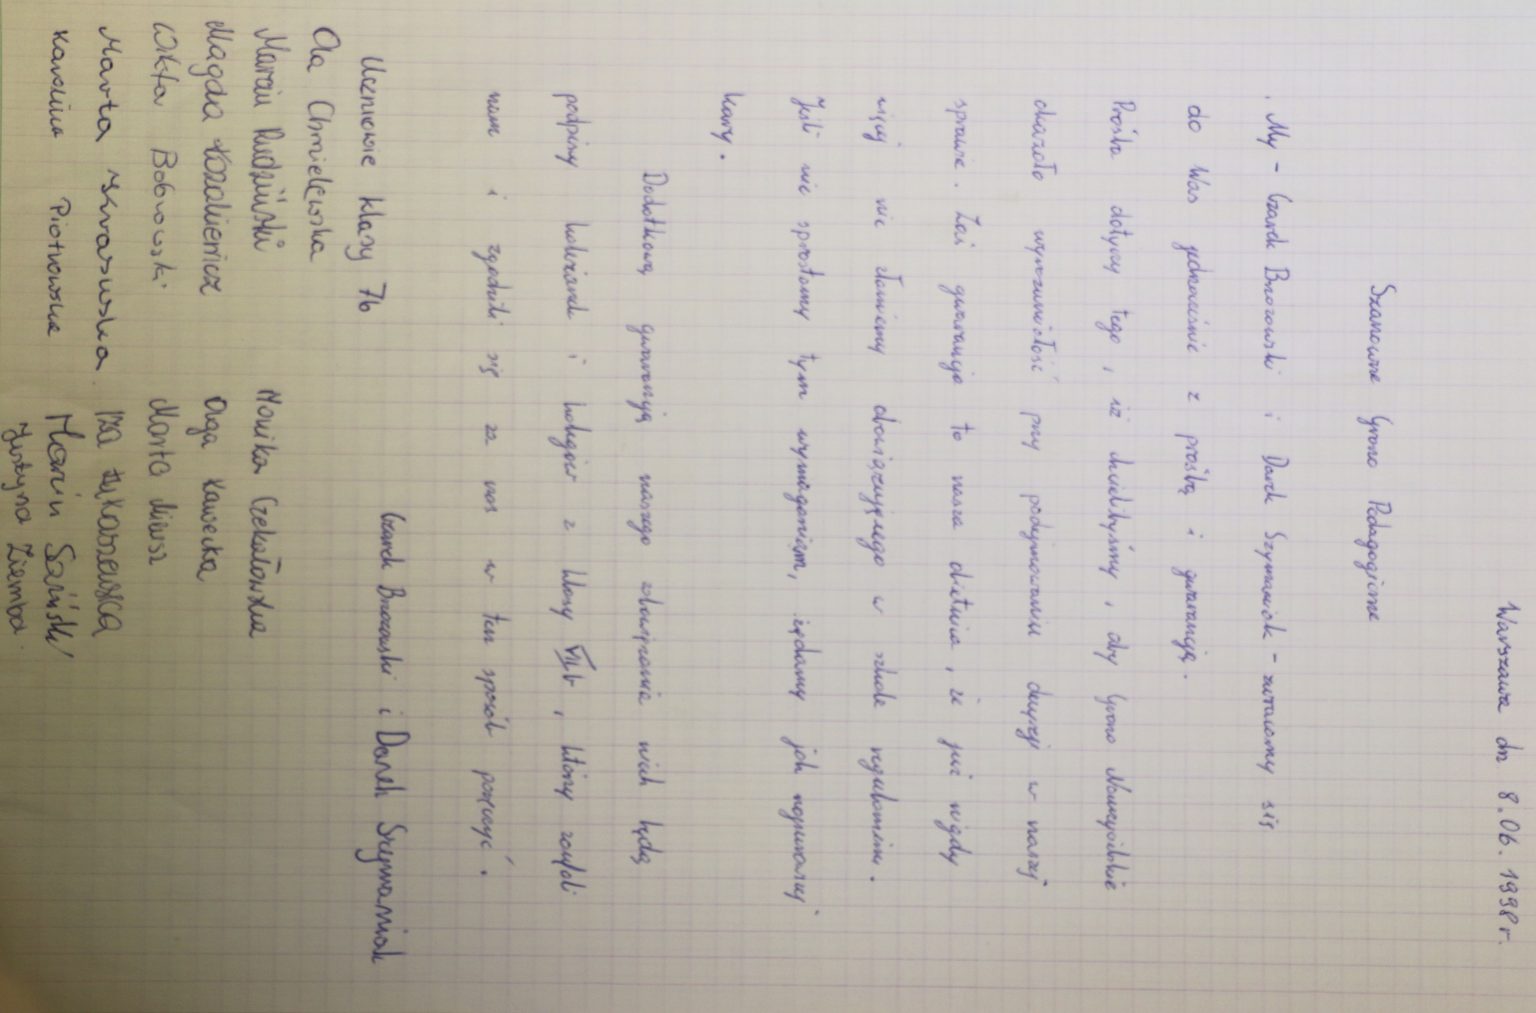 Warszawa dn 8.06.1998 r.
Szanowne Grono Pedagogiczne
My - Czarek Brzozowski i Darek Szymaniak - zwracamy się
do Was jednocześnie z prośbą i gwarancją.
Prośba dotyczy tego, iż chcielibyśmy, aby Grono Nauczycielskie
okazało wyrozumiałość przy podejmowaniu decyzji w naszej
sprawie. Zaś gwarancja to nasza obietnica, że już nigdy
więcej nie złamiemy obowiązującego w szkole regulaminu.
Jeśli nie sprostamy tym wymaganiom, żądamy jak najsurowszej
kary.
Dodatkową gwarancją naszego zobowiązania niech będą
podpisy koleżanek i kolegów z klasy VIIb, którzy zaufali
nam i zgodzili się za nas w ten sposób poręczyć.
Czarek Brzozowski i Darek Szymaniak
Uczniowie klasy 7b
Ola Chmielewska
Marcin Rudziński Monika Czekałowska
Magda Olga Kawecka
Wiktor Bobrowski Marta
Marta Skrasuska Iza Łukaszewska
Karolina Piotrowska Marcin
Justyna Ziemba